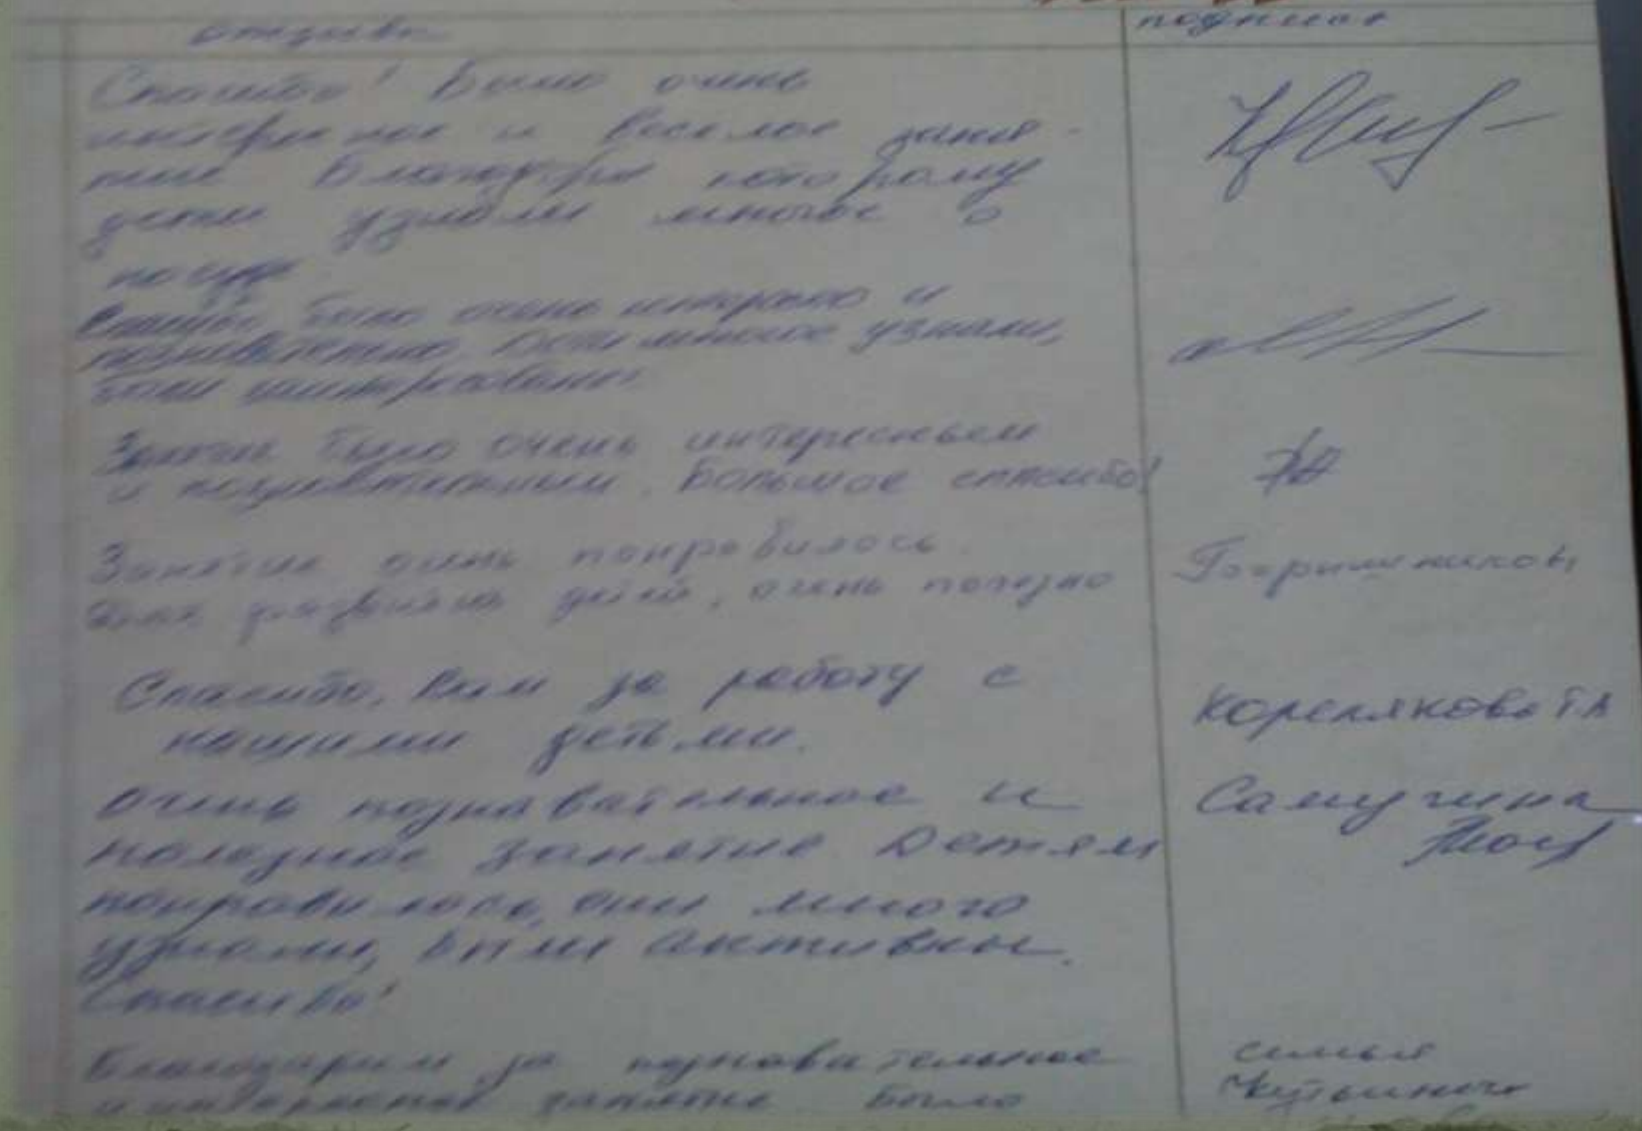 отзывы
подпись
Спасибо! Было очень
интересное и веселое заня-
тие Благодаря которому
дети узнали многое о
посуде
Спасибо было очень интересно и
познавательно. Дети многое узнали,
были заинтересованы.
Занятие было очень интересным
и познавательным. Большое спасибо!
Занятие очень понравилось.
Для развития детей, очень полезно
Спасибо, Вам за работу с
нашими детьми.
Корелякова Т.А
Очень познавательное и
Самучина
полезное занятие Детям
понравилось, они много
узнали, были активны.
Спасибо!
Благодарим за познавательное
семья
и интересное занятие. Было